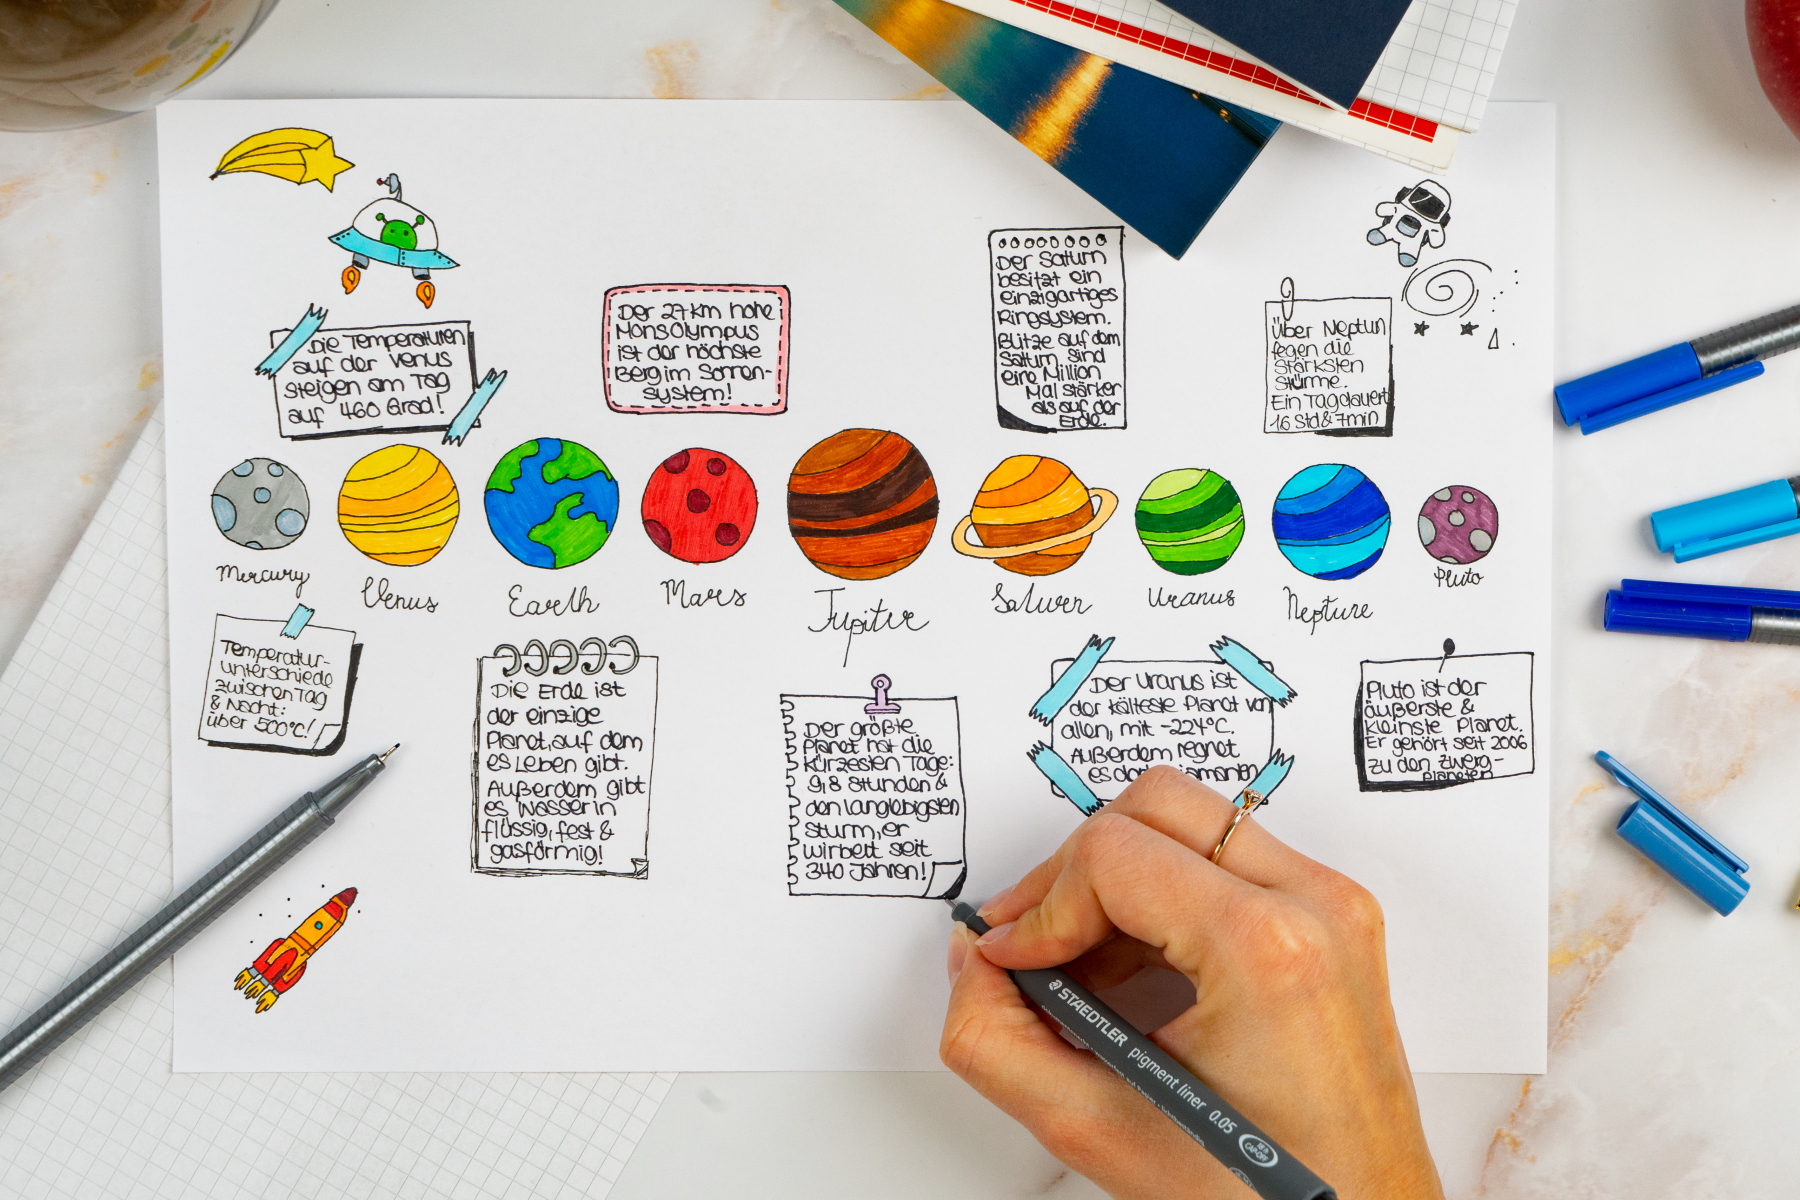 Die Temperaturen
auf der Venus
steigen am Tag
auf 460 Grad!
Der 27km hohe
Mons Olympus
ist der höchste
Berg im Sonnen-
system!
Der Saturn
besitzt ein
einzigartiges
Ringsystem.
Blitze auf dem
Saturn sind
eine Million
Mal stärker
als auf der
Erde.
Über Neptun
fegen die
stärksten
Stürme.
Ein Tag dauert
16 Std & 7min
Mercury
Venus
Earth
Mars
Jupiter
Saturn
Uranus
Neptune
Pluto
Temperatur-
unterschiede
zwischen Tag
& Nacht:
über 500°C!
Die Erde ist
der einzige
Planet, auf dem
es Leben gibt.
Außerdem gibt
es Wasser in
flüssig, fest &
gasförmig!
Der größte
Planet hat die
kürzesten Tage:
9,8 Stunden &
den langlebigsten
Sturm, er
wirbelt seit
340 Jahren!
Der Uranus ist
der kälteste Planet von
allen, mit -224°C.
Außerdem regnet
es
Pluto ist der
äußerste &
kleinste Planet.
Er gehört seit 2006
zu den Zwerg-
planeten
STAEDTLER pigment liner 0.05
CAP-OFF